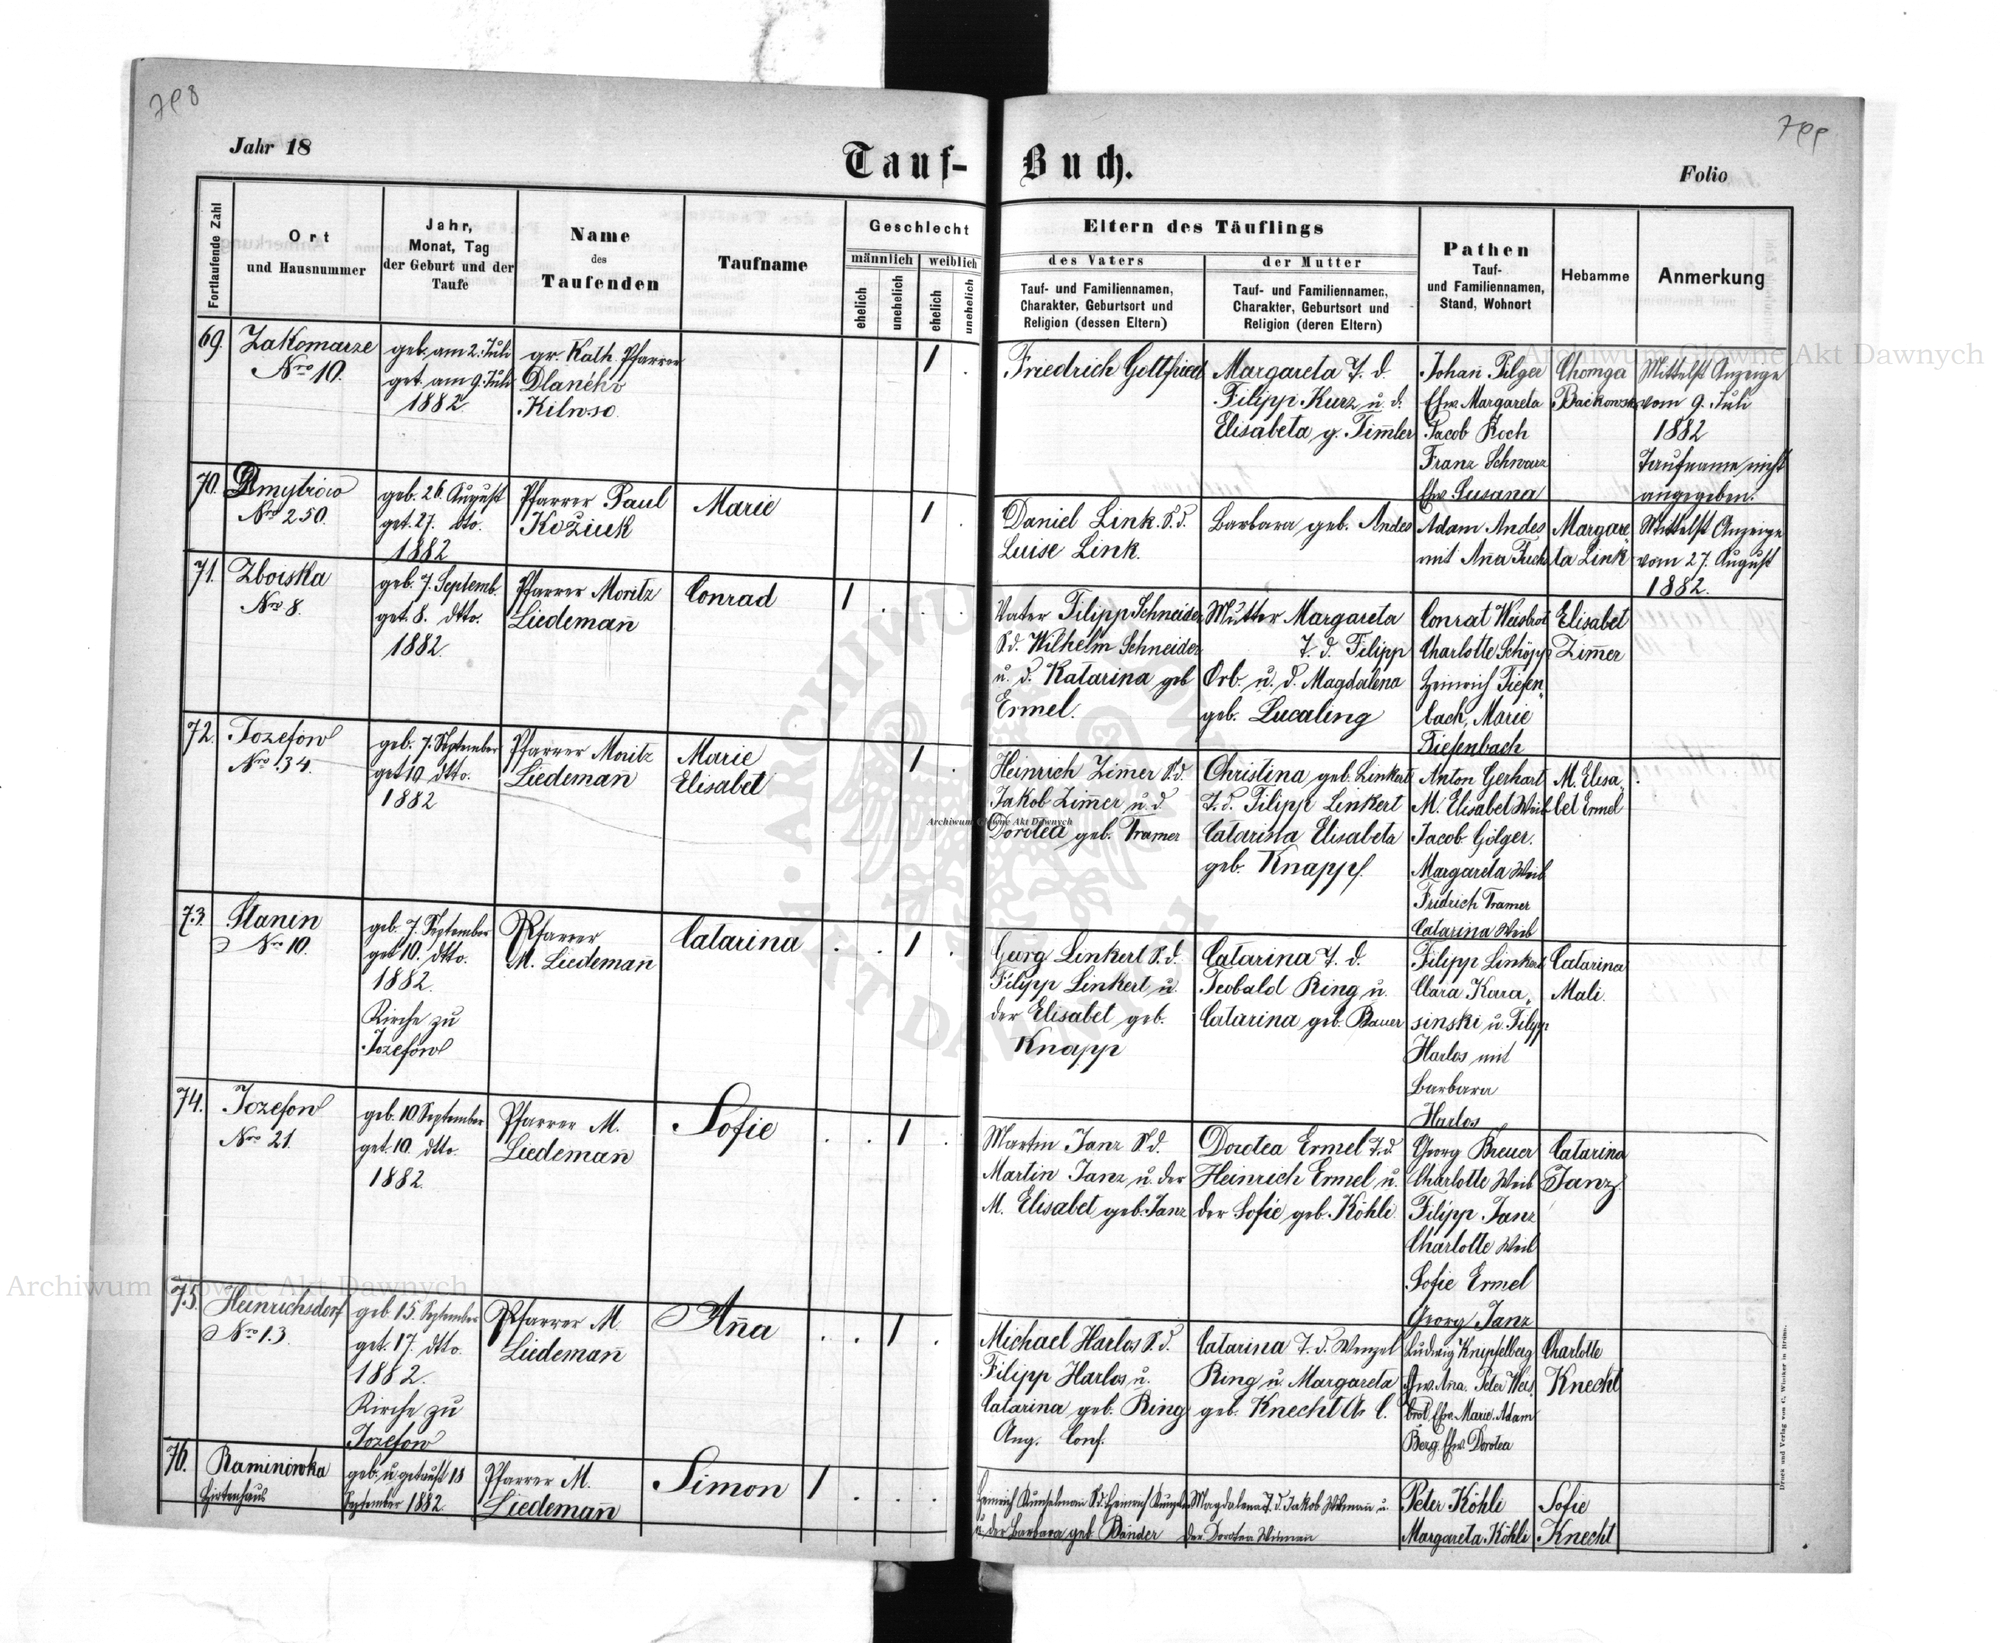 798
799
Jahr 18
Tauf-Buch.
Folio
Fortlaufende Zahl
Ort
und Hausnummer
Jahr,
Monat, Tag
der Geburt und der
Taufe
Name
des
Taufenden
Taufname
Geschlecht
männlich
weiblich
ehelich
unehelich
ehelich
unehelich
Eltern des Täuflings
des Vaters
Tauf- und Familiennamen,
Charakter, Geburtsort und
Religion (dessen Eltern)
der Mutter
Tauf- und Familiennamen,
Charakter, Geburtsort und
Religion (deren Eltern)
Pathen
Tauf-
und Familiennamen,
Stand, Wohnort
Hebamme
Anmerkung
69.
Zakomarze
Nro 10.
geb. am 2. Juli
get. am 9. Juli
1882
gr. Kath. Pfarrer
1
Friedrich Gottfried
Margareta T. d.
Filipp Kurz u. d.
Elisabeta g. Tim̄ler
Johan̄ Pilger
Ehw. Margareta
Jacob Koch
Franz Schwarz
Ehw. Susana
Chomga
Mittelst Anzeige
vom 9. Juli
1882
Taufname nicht
angegeben.
70.
Dmytrów
Nro 250.
geb. 26. August
get. 27. dto.
1882
Pfarrer Paul
Koziuk
Marie
1
Daniel Link. S. d.
Luise Link.
Barbara geb. Andes
Adam Andes
mit An̄a Fuchs
Margare
ta Link
Mittelst Anzeige
vom 27. August
1882.
71.
Zboiska
Nro 8.
geb. 7. Septemb.
get. 8. dtto.
1882.
Pfarrer Moritz
Liedeman̄
Conrad
1
Vater Filipp Schneider
S d. Wilhelm Schneider
u. d. Katarina geb
Ermel.
Mutter Margareta
T. d. Filipp
Orb. u. d. Magdalena
geb. Lucaling
Conrat Weisbrot
Charlotte Schöpp
Heinrich Tiefen„
bach, Marie
Tiefenbach
Elisabet
Zim̄er
72.
Jozefow
Nro 34.
geb. 7. September
get 10 dtto.
1882
Pfarrer Moritz
Liedeman̄
Marie
Elisabet
1
Heinrich Zim̄er S. d.
Jakob Zim̄er u. d
Dorotea geb. Tramer
Christina geb. Linkert
T. d. Filipp Linkert
Catarina Elisabeta
geb. Knapp.
Anton Gerhart
M. Elisabet Weib
Jacob Gölger.
Margareta Weib
Fridrich Tramer
Catarina Weib
M. Elisa„
bet Ermel
73.
Stanin
Nro 10.
geb. 7. September
get 10. dtto.
1882.
Kirche zu
Jozefow
Pfarrer
M. Liedeman̄
Catarina
1
Georg Linkert S. d.
Filipp Linkert u.
der Elisabet geb.
Knapp
Catarina T. d.
Teobald Ring u.
Catarina geb. Bauer
Filipp Linkert
Clara Kara„
sinski u. Filipp
Harlos mit
Barbara
Harlos
Catarina
Mali.
74.
Jozefow
Nro 21.
geb. 10 September
get. 10. dtto.
1882.
Pfarrer M.
Liedeman̄
Sofie
1
Martin Janz S. d.
Martin Janz u. der
M. Elisabet geb. Janz
Dorotea Ermel T. d
Heinrich Ermel u.
der Sofie geb. Köhli.
Georg Breuer
Charlotte Weib
Filipp Janz
Charlotte Weib
Sofie Ermel
Georg Janz
Catarina
Janz.
75.
Heinrichsdorf
Nro 13.
geb 15. September
get. 17. dtto.
1882.
Kirche zu
Jozefow
Pfarrer M.
Liedeman̄
An̄a
1
Michael Harlos S. d.
Filipp Harlos u.
Catarina geb. Ring
Aug. Conf.
Catarina T. d. Wenzel
Ring u. Margareta
geb. Knecht A. C.
Ludwig Knipfelberg
Ehw. An̄a. Peter Weis„
brot, Ehw. Marie. Adam
Berg, Ehw. Dorotea
Charlotte
Knecht
76.
Kaminówka
Hirtenhaus
geb. u. getauft 18
September 1882.
Pfarrer M.
Liedeman̄
Simon
1
u. der Barbara geb. Bänder
Magdalena T. d. Jakob
der Dorotea
Peter Köhli
Margareta Köhli
Sofie
Knecht
Archiwum Główne Akt Dawnych
Archiwum Główne Akt Dawnych
Archiwum Główne Akt Dawnych
Druck und Verlag von C. Winiker in Brünn.